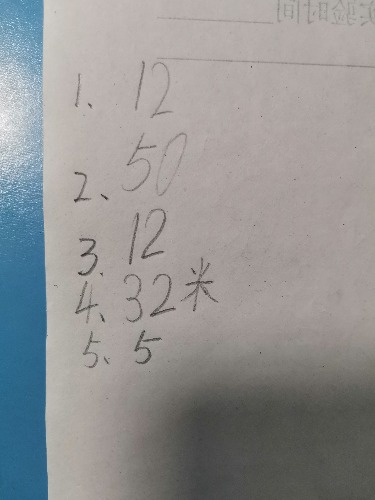 实验时间
1、12
2、50
3.12
4、32米
5、5